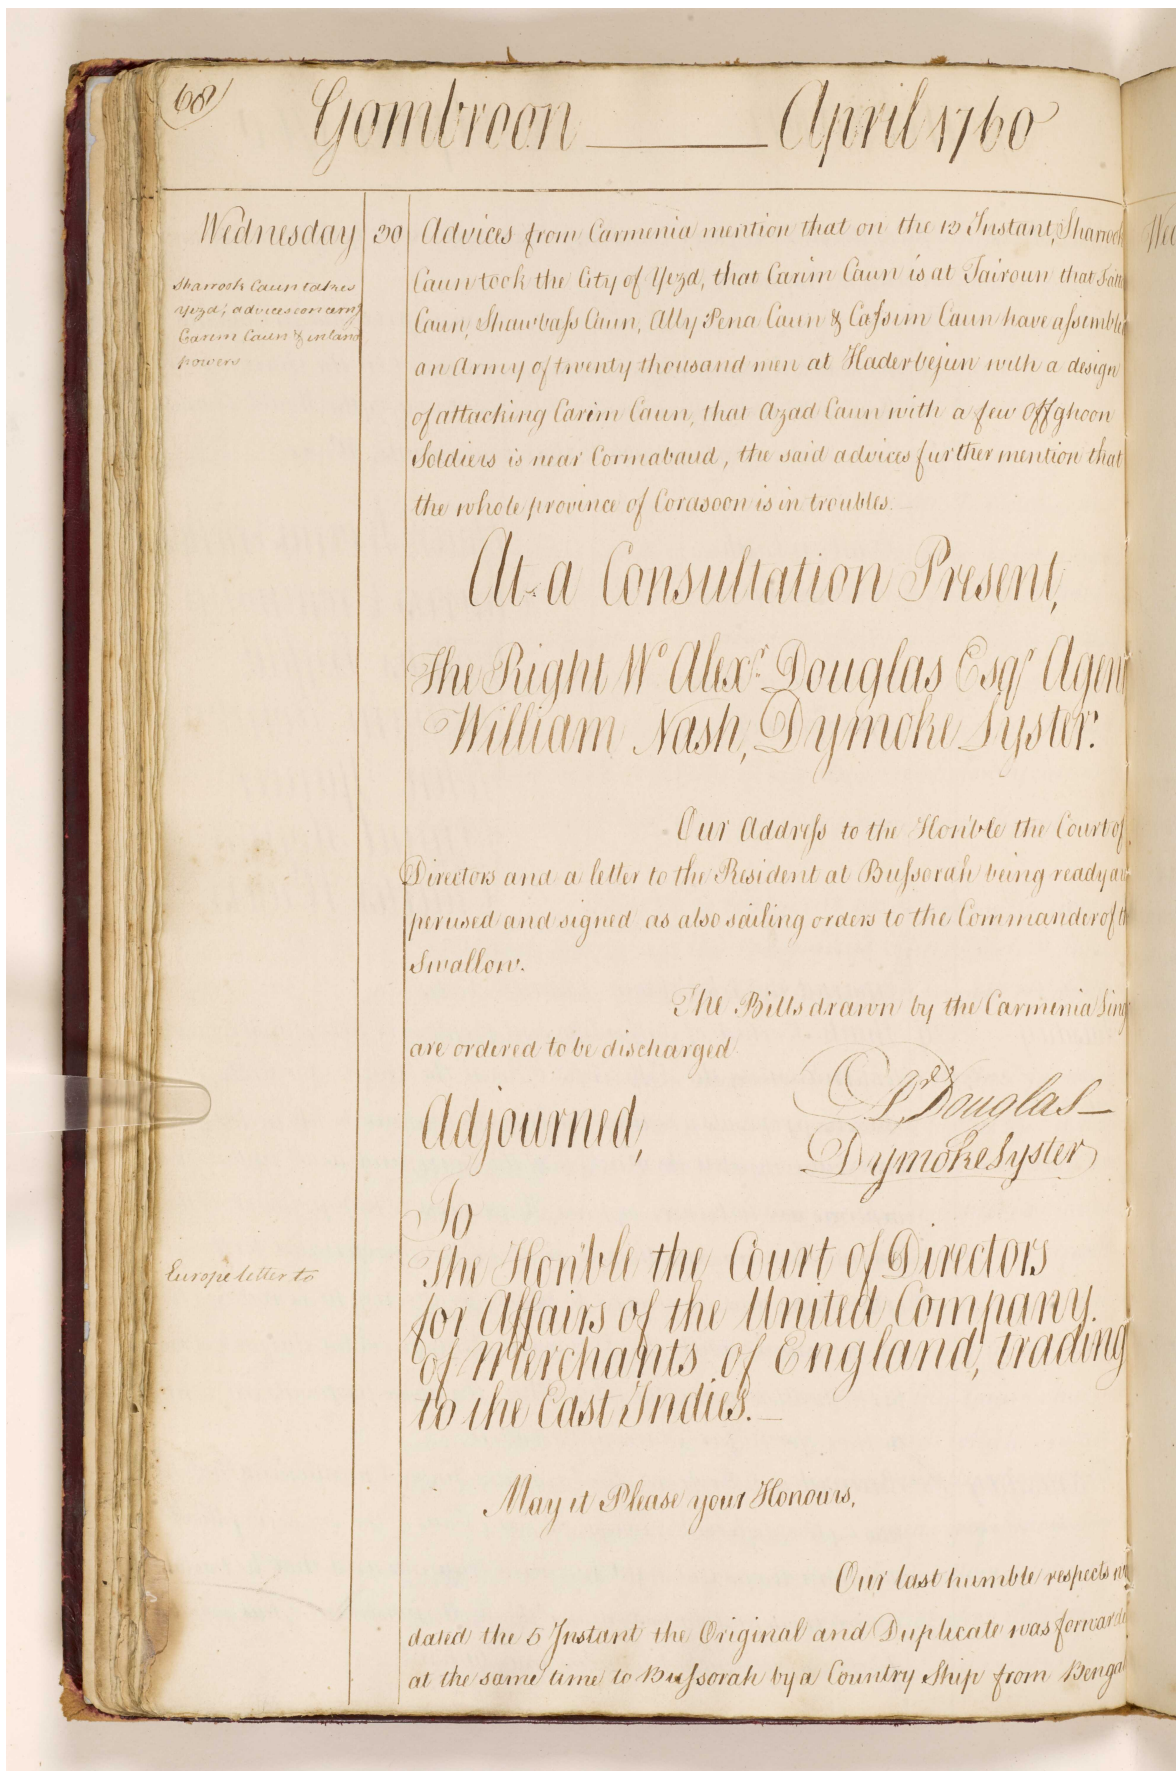 68
Gombroon April 1760
Wednesday 30 Advices from Carmenia mention that on the 13 Instant, Sharrock
Caun took the City of Yezd, that Carim Caun is at Tairoun that
Caun, Shawbass Caun, Ally Pena Caun & Cassim Caun have assemble
an Army of twenty thousand men at Haderbejun with a design
of attacking Carim Caun, that Azad Caun with a few Offghoon
Soldiers is near Cormabaud, the said advices further mention that
the whole province of Corasoon is in troubles.
Sharrock Caun takes
Yezd; advices concerng
Carim Caun & inland
powers
At a Consultation Present,
The Right Wo. Alexr. Douglas Esqr Agent
William Nash, Dymoke Lyster.
Our Address to the Honble the Court of
Directors and a letter to the Resident at Bussorah being ready are
perused and signed as also sailing orders to the Commander of th
Swallow.
The Bills drawn by the Carmenia
are ordered to be discharged
Adjourned,
Ar. Douglas
Dymoke Lyster
To
The Honble the Court of Directors
for Affairs of the United Company
of Merchants of England, trading
to the East Indies.
Europe letter to
May it Please your Honours,
Our last humble respects
dated the 5 Instant the Original and Duplicate was forwarde
at the same time to Bussorah by a Country Ship from Benga